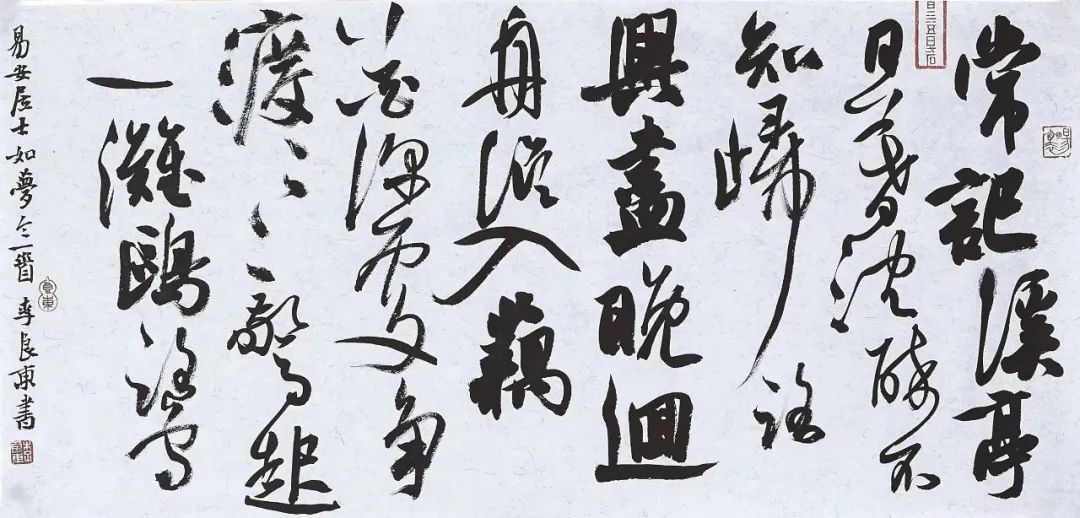 常記溪亭
日暮沈醉不
知歸路
興盡晚迴
舟誤入藕
花深處爭
渡〻〻驚起
一灘鷗鷺
易安居士如夢令一首 李良東書